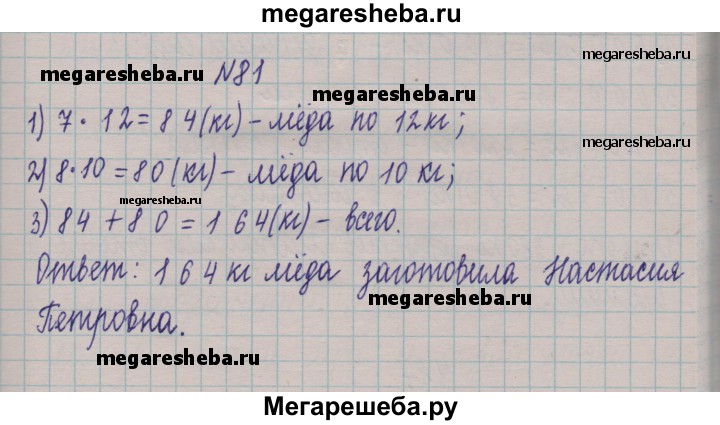 megaresheba.ru
megaresheba.ru
megaresheba.ru №81
megaresheba.ru
1) 7 · 12 = 84 (кг) – мёда по 12 кг;
megaresheba.ru
2) 8 · 10 = 80 (кг) – мёда по 10 кг;
megaresheba.ru
3) 84 + 80 = 164 (кг) – всего.
Ответ: 164 кг мёда заготовила Настасия
megaresheba.ru
Петровна.
megaresheba.ru
Мегарешеба.ру